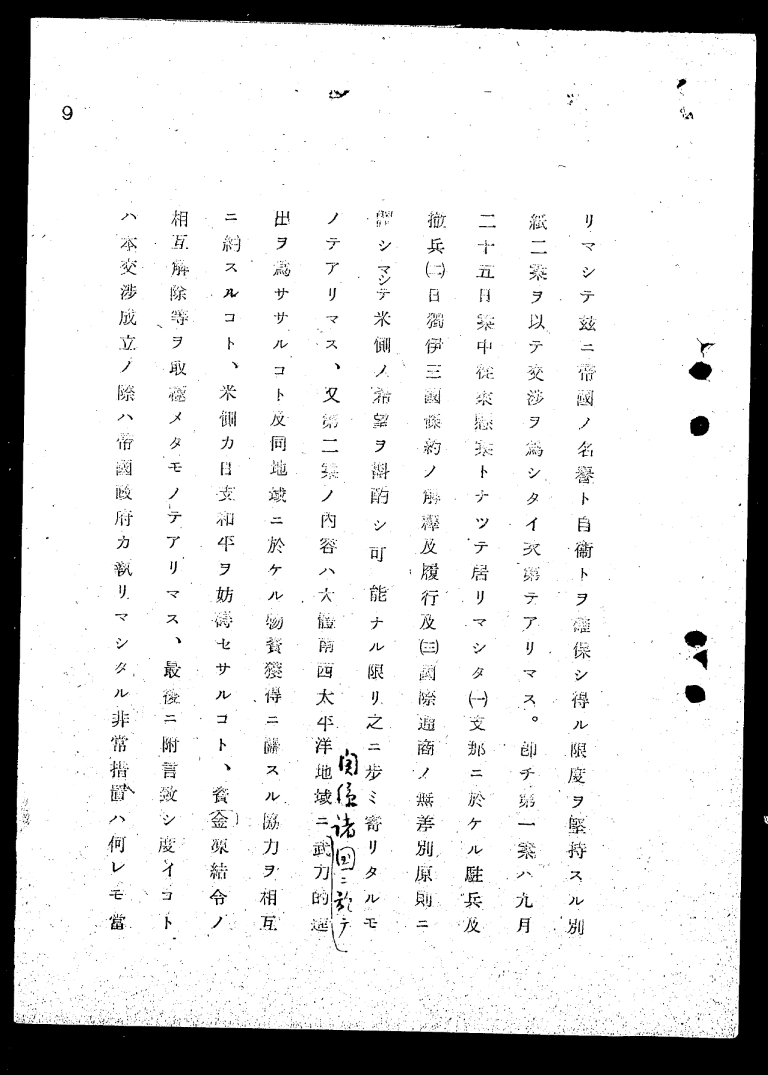 9
リマシテ茲ニ帝國ノ名譽ト自衞トヲ確保シ得ル限度ヲ堅持スル別
紙二案ヲ以テ交涉ヲ爲シタイ次第テアリマス。卽チ第一案ハ九月
二十五日案中從來懸案トナツテ居リマシタ㈠支那ニ於ケル駐兵及
撤兵㈡日獨伊三國條約ノ解釋及履行及㈢國際通商ノ無差別原則ニ
關シマシテ米側ノ希望ヲ斟酌シ可能ナル限リ之ニ步ミ寄リタルモ
ノテアリマス、又第二案ノ內容ハ大體南西太平洋地域ニ武力的進
関係諸国ニ於テ
出ヲ爲ササルコト及同地域ニ於ケル物資獲得ニ關スル協力ヲ相互
ニ約スルコト、米側カ日支和平ヲ妨礙セサルコト、資金凍結令ノ
相互解除等ヲ取極メタモノテアリマス、最後ニ附言致シ度イコト
ハ本交涉成立ノ際ハ帝國政府カ執リマシタル非常措置ハ何レモ當